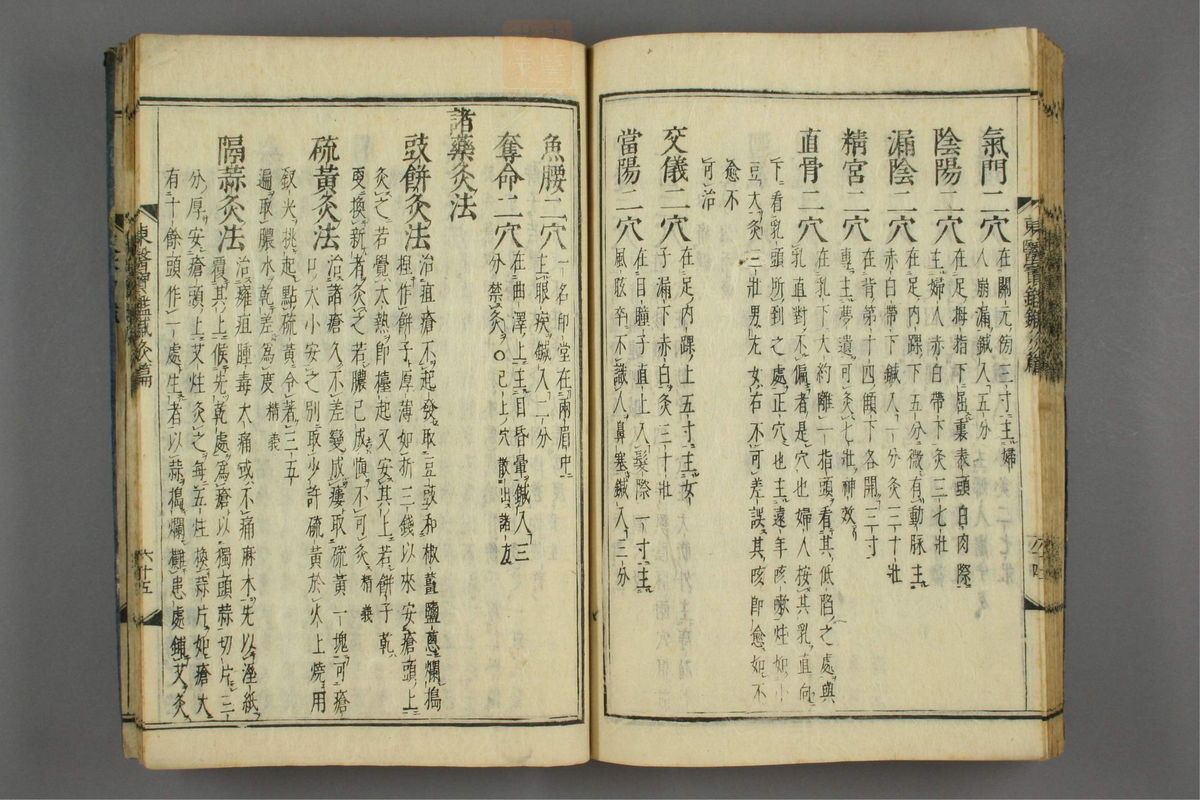 氣門二穴 在關元傍三寸主婦
人崩漏鍼入五分
陰陽二穴 在足拇指下屈裏表頭白肉際
主婦人赤白帶下灸三七壯
漏陰二穴 在足內踝下五分微有動脉主
赤白帶下鍼入一分灸三十壯
精宮二穴 在背第十四顀下各開三寸
專主夢遺可灸七壯神效
直骨二穴 在乳下大約離一指頭看其低陷之處與
乳直對不偏者是穴也婦人按其乳直向
下看乳頭所到之處正穴也主遠年咳嗽炷如小
豆大灸三壯男左女右不可差誤其咳即愈如不
愈不
可治
交儀二穴 在足內踝上五寸主女
子漏下赤白灸三十壯
當陽二穴 在目瞳子直上入髮際一寸主
風眩卒不識人鼻塞鍼入三分
魚腰二穴 一名印堂在兩眉中
主眼疾鍼入二分
奪命二穴 在曲澤上主目昏暈鍼入三
分禁灸○已上穴散出諸方
諸藥灸法
豉餅灸法 治疽瘡不起發取豆豉和椒薑鹽蔥爛搗
捏作餅子厚薄如折三錢以來安瘡頭上
灸之若覺太熱即擡起又安其上若餅子乾
更換新者灸之若膿已成慎不可灸精義
硫黃灸法 治諸瘡久不差變成瘻取硫黃一塊可瘡
口大小安之別取少許硫黃於火上燒用
釵尖挑起點硫黃令著三五
遍取膿水乾差爲度精義
隔蒜灸法 治癰疽腫毒大痛或不痛麻木先以濕紙
覆其上候先乾處爲瘡以獨頭蒜切片三
分厚安瘡頭上艾炷灸之每五炷換蒜片如瘡大
有十餘頭作一處生者以蒜搗爛攤患處鋪艾灸
東醫寶鑑鍼灸篇
六十五